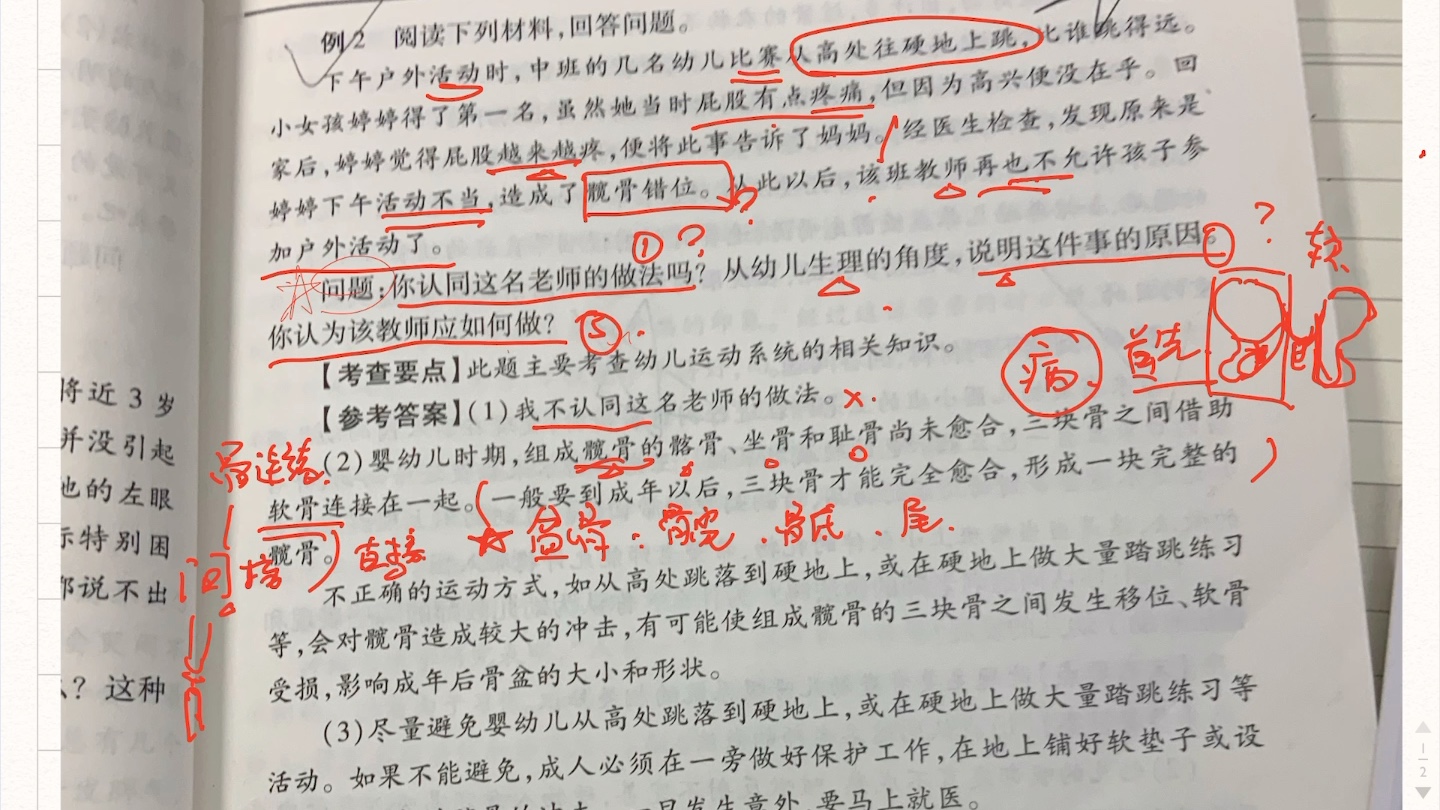 例2 阅读下列材料,回答问题。
下午户外活动时,中班的几名幼儿比赛从高处往硬地上跳,比谁跳得远。
小女孩婷婷得了第一名,虽然她当时屁股有点疼痛,但因为高兴便没在乎。回
家后,婷婷觉得屁股越来越疼,便将此事告诉了妈妈。经医生检查,发现原来是
婷婷下午活动不当,造成了髋骨错位。从此以后,该班教师再也不允许孩子参
加户外活动了。
① ?
?
软
问题:你认同这名老师的做法吗? 从幼儿生理的角度,说明这件事的原因。
你认为该教师应如何做?
③
【考查要点】此题主要考查幼儿运动系统的相关知识。
首先
【参考答案】(1)我不认同这名老师的做法。
×
(2)婴幼儿时期,组成髋骨的髂骨、坐骨和耻骨尚未愈合,三块骨之间借助
骨连结
软骨连接在一起。一般要到成年以后,三块骨才能完全愈合,形成一块完整的
髋骨。
直接
盆骨:髋、骶、尾.
间接
不正确的运动方式,如从高处跳落到硬地上,或在硬地上做大量踏跳练习
等,会对髋骨造成较大的冲击,有可能使组成髋骨的三块骨之间发生移位、软骨
受损,影响成年后骨盆的大小和形状。
(3)尽量避免婴幼儿从高处跳落到硬地上,或在硬地上做大量踏跳练习等
活动。如果不能避免,成人必须在一旁做好保护工作,在地上铺好软垫子或设
一旦发生意外,要马上就医。
将近3岁
并没引起
他的左眼
示特别困
都说不出
? 这种